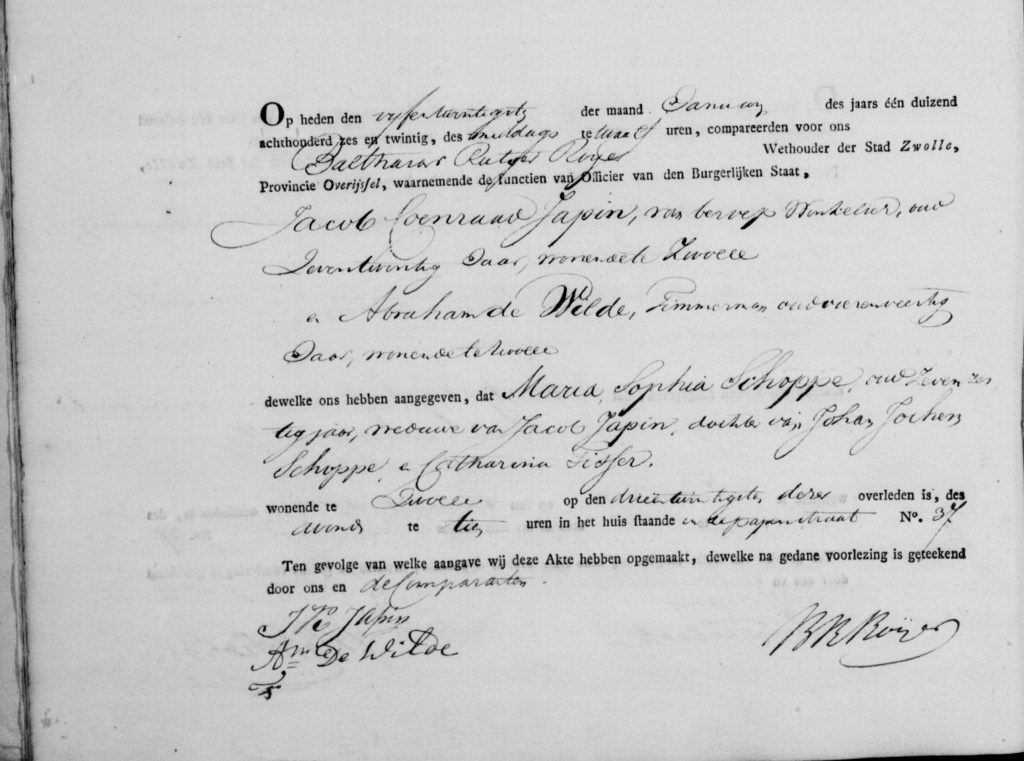 Op heden den vijfentwintigsten der maand January des jaars één duizend
achthonderd zes en twintig, des middags te twaalf uren, compareerden voor ons
Balthasar Rutger Royer Wethouder der Stad Zwolle,
Provincie Overijssel, waarnemende de functien van Officier van den Burgerlijken Staat,
Jacob Coenraad Japin, van beroep Winkelier, oud
Zeventwintig Jaar, wonende te Zwolle
en Abraham de Wilde, Timmerman oud vierenveertig
Jaar, wonende te Zwolle
dewelke ons hebben aangegeven, dat Maria Sophia Schoppe, oud Zevenzes
tig jaar, weduwe van Jacob Japin, dochter van Johan Jochem
Schoppe, en Catharina Tisser.
wonende te Zwolle op den drieëntwintigsten dezer overleden is, des
avonds te tien uren in het huis staande in de papenstraat No. 37
Ten gevolge van welke aangave wij deze Akte hebben opgemaakt, dewelke na gedane voorlezing is geteekend
door ons en de Comparanten.
Japin
BR Roijer
Am De Wilde